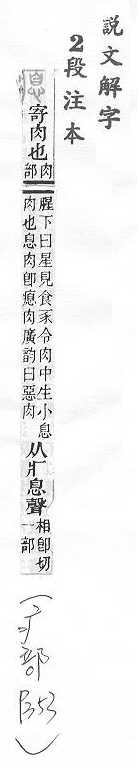 説文解字
2段注本
瘜
寄肉也
肉
部
腥下曰星見食豕令肉中生小息
肉也息肉卽瘜肉廣韵曰惡肉
从疒息聲
相卽切
一部
(疒部P353)